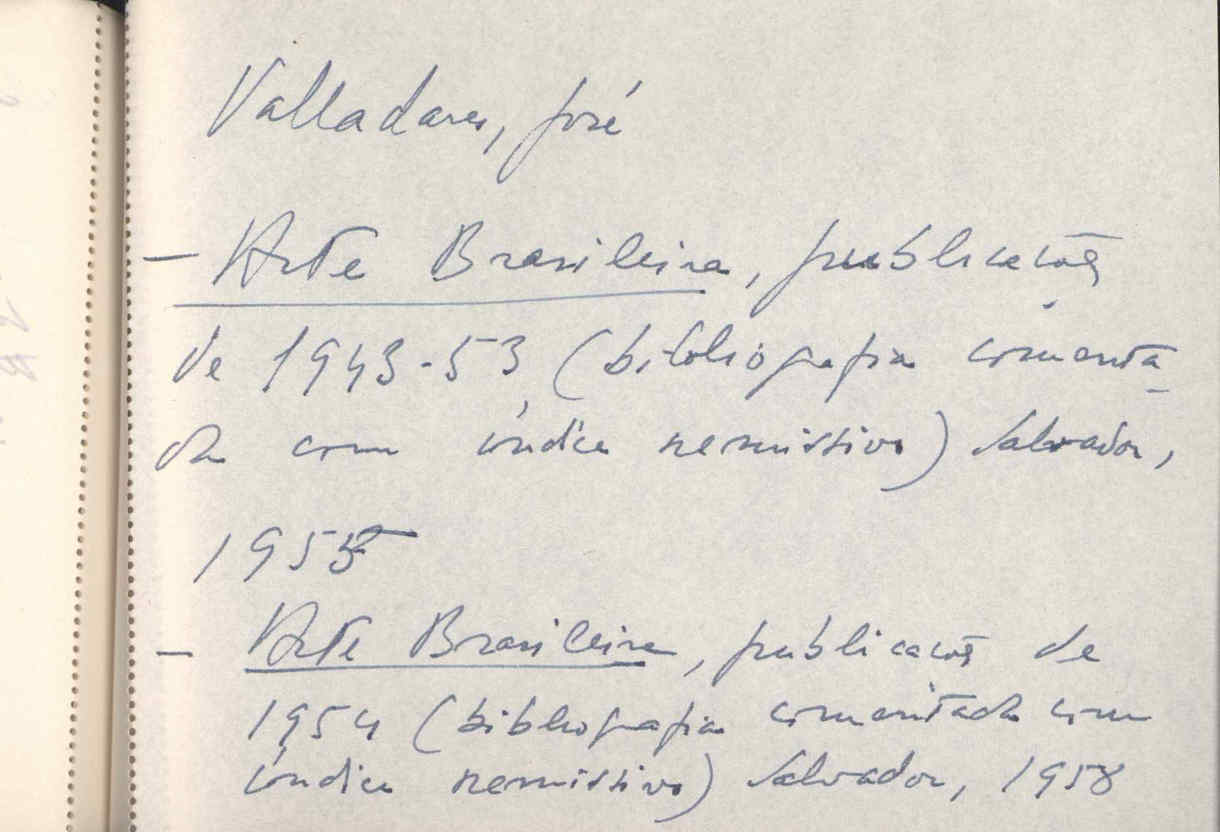 Valladares, José
– Arte Brasileira, publicações
de 1943-53, (bibliografia comenta-
da com índice remissivo) Salvador,
1955
– Arte Brasileira, publicações de
1954 (bibliografia comentada com
índice remissivo) Salvador, 1958